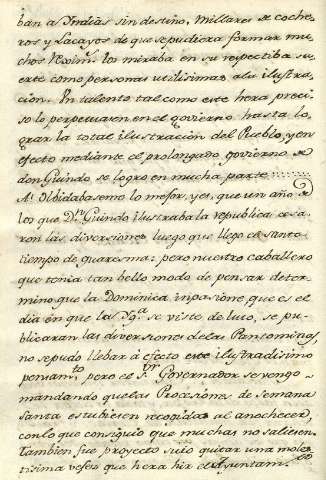 ban a Yndias sin destino, Millares de coche
ros y Lacayos de que se pudiera formar mu
chos Reximtos los miraba en su respectiba su
erte como personas utilisimas a la ilustra
cion. Un talento tal como este hera preci
so lo perpetuasen en el govierno hasta lo
grar la total ilustracion del Pueblo, y en
efecto mediante el prolongado govierno de
don Guindo se logro en mucha parte
A! Olbidabaseme lo mejor, y es, que un año de
los que Dn Guindo ilustraba la republica cesa
ron las diversiones luego que llego el santo
tiempo de quaresma: pero nuestro caballero
que tenia tan bello modo de pensar deter
mino que la Dominica inpasione que es el
dia en que la Yga se viste de luto, se pu
blicaran las diversiones de las Pantominas,
no se pudo llebar á efecto este ilustradisimo
pensamto pero el Sr Governador se vengo
mandando que las Procesiones de Semana
Santa estubiesen recogidas al anochecer,
con lo que consiguio que muchas no saliesen.
Tambien fue proyecto suio quitar una moles
tisima vejes que hera hir el Ayuntamto